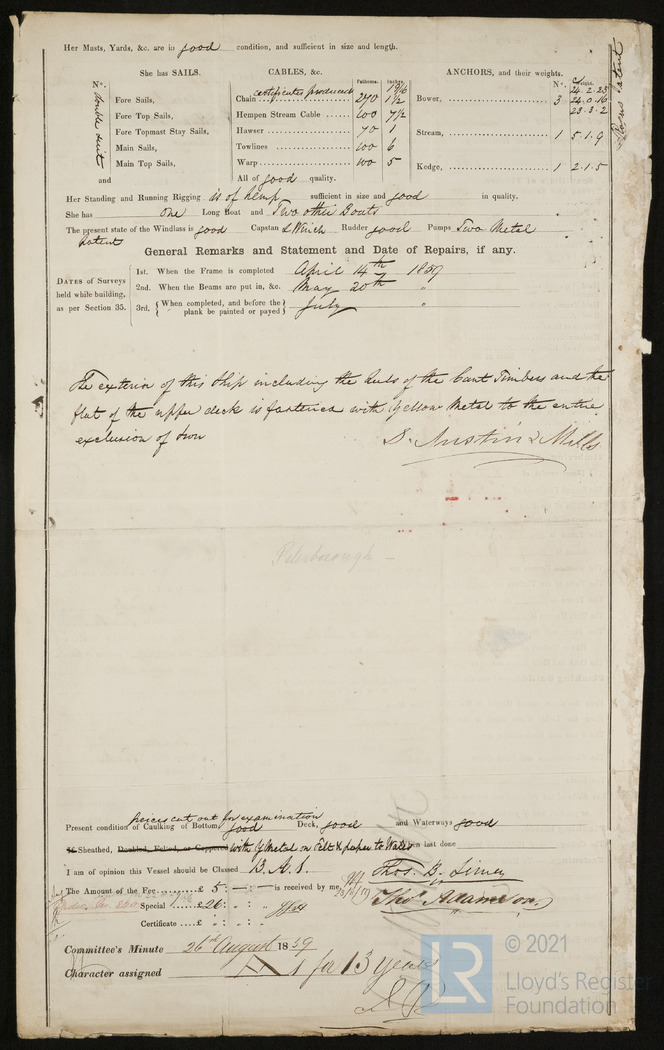 Her Masts, Yards, &c. are in good condition, and sufficient in size and length.
She has SAILS.
N°.
double suit
Fore Sails,
Fore Top Sails,
Fore Topmast Stay Sails,
Main Sails,
Main Top Sails,
and
CABLES, &c.
Fathoms. Inches.
certificates produced
Chain 270 1 1/2
Hempen Stream Cable 100 7 1/2
Hawser 70 1
Towlines 100 6
Warp 100 5
All of good quality.
ANCHORS, and their weights.
N°. Weight.
Bower, 3 24.2.23
24.0.16
23.3.2
Stream, 1 5.1.9
Kedge, 1 2.1.5
Patent
Her Standing and Running Rigging is of hemp sufficient in size and good in quality.
She has one Long Boat and Two other Boats
The present state of the Windlass is good Capstan & Winch Rudder good Pumps Two Metal
Patent
General Remarks and Statement and Date of Repairs, if any.
DATES of Surveys held while building, as per Section 35.
1st. When the Frame is completed April 14th 1859
2nd. When the Beams are put in, &c. May 20th "
3rd, { When completed, and before the plank be painted or payed } July "
The exterior of this Ship including the heels of the Cant Timbers and the
flat of the upper deck is fastened with Yellow Metal to the entire
exclusion of Iron
S. Austin & Mills
Peterborough
pieces cut out for examination
Present condition of Caulking of Bottom good Deck, good and Waterways good
Is Sheathed, Doubled, Felted, or Coppered with Y Metal on Felt & paper to Wales When last done
I am of opinion this Vessel should be Classed 13 A.1.
Thos. B. Simey
The Amount of the Fee £ 5 : — : — is received by me,
Special £ 26 : " : "
Thos Adamson
Certificate £ " : " : "
Committee's Minute 26th August 1859
Character assigned A 1 for 13 years
LR © 2021
Lloyd's Register
Foundation